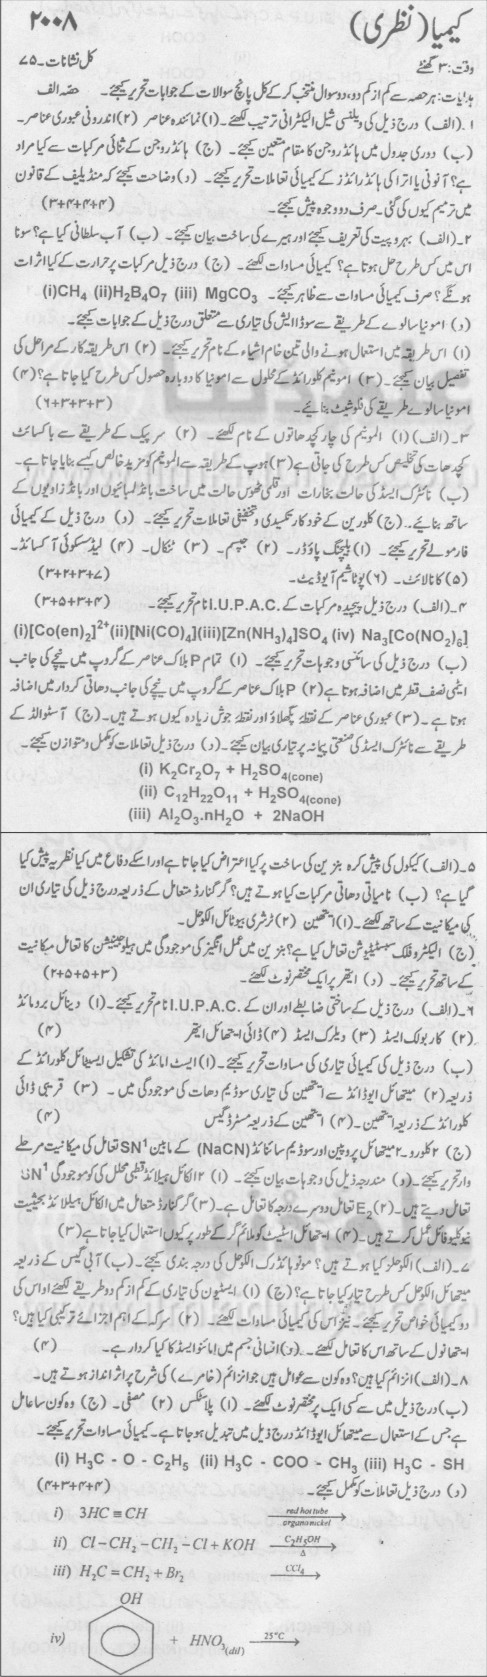 کیمیا (نظری) ۲۰۰۸
وقت: ۳ گھنٹے کل نشانات۔ ۷۵
ہدایات: ہر حصہ سے کم از کم دو، دو سوال منتخب کر کے کل پانچ سوالات کے جوابات تحریر کیجئے۔ حصہ الف
۱۔ (الف) درج ذیل کی ویلنسی شیل الیکٹرانی ترتیب لکھئے۔ (۱) نمائندہ عناصر (۲) اندرونی عبوری عناصر۔
(ب) دوری جدول میں ہائڈروجن کا مقام متعین کیجئے۔ (ج) ہائڈروجن کے ثنائی مرکبات سے کیا مراد
ہے؟ آئونی یا انٹرا کی ہائڈرائڈز کے کیمیائی تعاملات تحریر کیجئے۔ (د) وضاحت کیجئے کہ منڈیلیف کے قانون
میں ترمیم کیوں کی گئی۔ صرف دو وجوہ پیش کیجئے۔ (۳+۴+۴+۴)
۲۔ (الف) بہروپیت کی تعریف کیجئے اور ہیرے کی ساخت بیان کیجئے۔ (ب) آب سلطانی کیا ہے؟ سونا
اس میں کس طرح حل ہوتا ہے؟ کیمیائی مساوات لکھئے۔ (ج) درج ذیل مرکبات پر حرارت کے کیا اثرات
ہونگے؟ صرف کیمیائی مساوات سے ظاہر کیجئے۔ (i)CH4 (ii)H2B4O7 (iii) MgCO3
(د) امونیا سالوے کے طریقے سے سوڈا ایش کی تیاری سے متعلق درج ذیل کے جوابات کیجئے۔
(۱) اس طریقہ میں استعمال ہونے والی تین خام اشیاء کے نام تحریر کیجئے۔ (۲) اس طریقہ کار کے مراحل کی
تفصیل بیان کیجئے۔ (۳) امونیم کلورائڈ کے محلول سے امونیا کا دوبارہ حصول کس طرح کیا جاتا ہے؟ (۴)
امونیا سالوے طریقے کی فلوشیٹ بنائیے۔ (۶+۳+۳+۳)
۳۔ (الف) (۱) المونیم کی چار کچدھاتوں کے نام لکھئے۔ (۲) سرپیک کے طریقے سے باکسائٹ
کچدھات کی تخلیص کس طرح کی جاتی ہے (۳) ہوپ کے طریقہ سے المونیم کو مزید خالص کیسے بنایا جاتا ہے۔
(ب) نائٹرک ایسڈ کی حالت بخارات اور قلمی ٹھوس حالت میں ساخت بانڈ لمبائیوں اور بانڈ زاویوں کے
ساتھ بنائیے۔ (ج) کلورین کے خود کار تکسیدی و تخفیفی تعاملات تحریر کیجئے۔ (د) درج ذیل کے کیمیائی
فارمولے تحریر کیجئے۔ (۱) بلیچنگ پاؤڈر۔ (۲) جپسم۔ (۳) ٹنکال۔ (۴) لیڈ سسکوئی آکسائڈ۔
(۵) کانالائٹ۔ (۶) پوٹاشیم آیوڈیٹ۔ (۳+۲+۳+۷)
۴۔ (الف) درج ذیل پیچیدہ مرکبات کے I.U.P.A.C. نام تحریر کیجئے۔ (۳+۵+۳+۴)
(i)[Co(en)2]2+(ii)[Ni(CO)4](iii)[Zn(NH3)4]SO4 (iv) Na3[Co(NO2)6]
(ب) درج ذیل کی سائنسی وجوہات تحریر کیجئے۔ (۱) تمام P بلاک عناصر کے گروپ میں نیچے کی جانب
ایٹمی نصف قطر میں اضافہ ہوتا ہے (۲) P بلاک عناصر کے گروپ میں نیچے کی جانب دھاتی کردار میں اضافہ
ہوتا ہے۔ (۳) عبوری عناصر کے نقطۂ پگھلاؤ اور نقطۂ جوش زیادہ کیوں ہوتے ہیں۔ (ج) آسٹوالڈ کے
طریقے سے نائٹرک ایسڈ کی صنعتی پیمانہ پر تیاری بیان کیجئے۔ (د) درج ذیل تعاملات کو مکمل و متوازن کیجئے۔
(i) K2Cr2O7 + H2SO4(cone)
(ii) C12H22O11 + H2SO4(cone)
(iii) Al2O3.nH2O + 2NaOH
۵۔ (الف) کیکول کی پیش کردہ بنزین کی ساخت پر کیا اعتراض کیا جاتا ہے اور اسکے دفاع میں کیا نظریہ پیش کیا
گیا ہے؟ (ب) نامیاتی دھاتی مرکبات کیا ہوتے ہیں؟ گرگنارڈ متعامل کے ذریعہ درج ذیل کی تیاری ان
کی میکانیت کے ساتھ لکھئے۔ (۱) ایتھین (۲) ٹرشری بیوٹائل الکوحل۔
(ج) الیکٹروفلک سبسٹیٹیوشن تعامل کیا ہے؟ بنزین میں عمل انگیز کی موجودگی میں ہیلوجنیشن کا تعامل میکانیت
کے ساتھ تحریر کیجئے۔ (د) ایتھر پر ایک مختصر نوٹ لکھئے۔ (۲+۵+۵+۳)
۶۔ (الف) درج ذیل کے ساختی ضابطے اور ان کے I.U.P.A.C. نام تحریر کیجئے۔ (۱) وینائل برومائڈ
(۲) کاربولک ایسڈ (۳) ویلرک ایسڈ (۴) ڈائی ایتھائل ایتھر (۴)
(ب) درج ذیل کی کیمیائی تیاری کی مساوات تحریر کیجئے۔ (۱) ایسٹ امائڈ کی تشکیل ایسیٹائل کلورائڈ کے
ذریعہ (۲) میتھائل آیوڈائڈ سے ایتھین کی تیاری سوڈیم دھات کی موجودگی میں۔ (۳) قریبی ڈائی
کلورائڈ کے ذریعہ ایتھین۔ (۴) ایتھین کے ذریعہ مسٹرڈ گیس (۴)
(ج) ۲ کلورو۔۲ میتھائل پروپین اور سوڈیم سائنائڈ (NaCN) کے مابین SN1 تعامل کی میکانیت مرحلے
وار تحریر کیجئے۔ (د) مندرجہ ذیل کی وجوہات بیان کیجئے۔ (۱) ۳ الکائل ہیلائڈ قطبی محلل کی موجودگی SN1
تعامل دیتے ہیں۔ (۲) E2 تعامل دوسرے درجہ کا تعامل ہے۔ (۳) گرگنارڈ متعامل میں الکائل ہیلائڈ بحیثیت
نیوکلیوفائل عمل کرتے ہیں۔ (۴) ایتھائل اسٹیٹ کو ملائم گر کے طور پر کیوں استعمال کیا جاتا ہے (۳)
۷۔ (الف) الکوحلز کیا ہوتے ہیں؟ مونو ہائڈرک الکوحل کی درجہ بندی کیجئے۔ (ب) آبی گیس کے ذریعہ
میتھائل الکوحل کس طرح تیار کیا جاتا ہے؟ (ج) (۱) ایسیٹون کی تیاری کے کم از کم دو طریقے لکھئے اور اس کی
دو کیمیائی خواص تحریر کیجئے۔ نیز اس کی کیمیائی مساوات لکھئے۔ (۲) سرکہ کے اہم اجزائے ترکیبی کیا ہیں؟
ایتھانول کے ساتھ اس کا تعامل لکھئے۔ (د) انسانی جسم میں امائنو ایسڈ کا کیا کردار ہے۔ (۴)
۸۔ (الف) انزائم کیا ہیں؟ وہ کون سے عوامل ہیں جو انزائم (خامرے) کی شرح پر اثر انداز ہوتے ہیں۔
(ب) درج ذیل میں سے کسی ایک پر مختصر نوٹ لکھئے۔ (۱) پلاسٹکس (۲) مصفی۔ (ج) وہ کون سا عامل
ہے جس کے استعمال سے میتھائل آیوڈائڈ درج ذیل میں تبدیل ہو جاتا ہے۔ کیمیائی مساوات تحریر کیجئے۔
(i) H3C - O - C2H5 (ii) H3C - COO - CH3 (iii) H3C - SH
(د) درج ذیل تعاملات کو مکمل کیجئے۔ (۴+۳+۴+۴)
i) 3HC ≡ CH red hot tube organonickel
ii) Cl – CH2 – CH2 – Cl + KOH C2H5OH Δ
iii) H2C = CH2 + Br2 CCl4
OH
iv) + HNO3(dil) 25°C